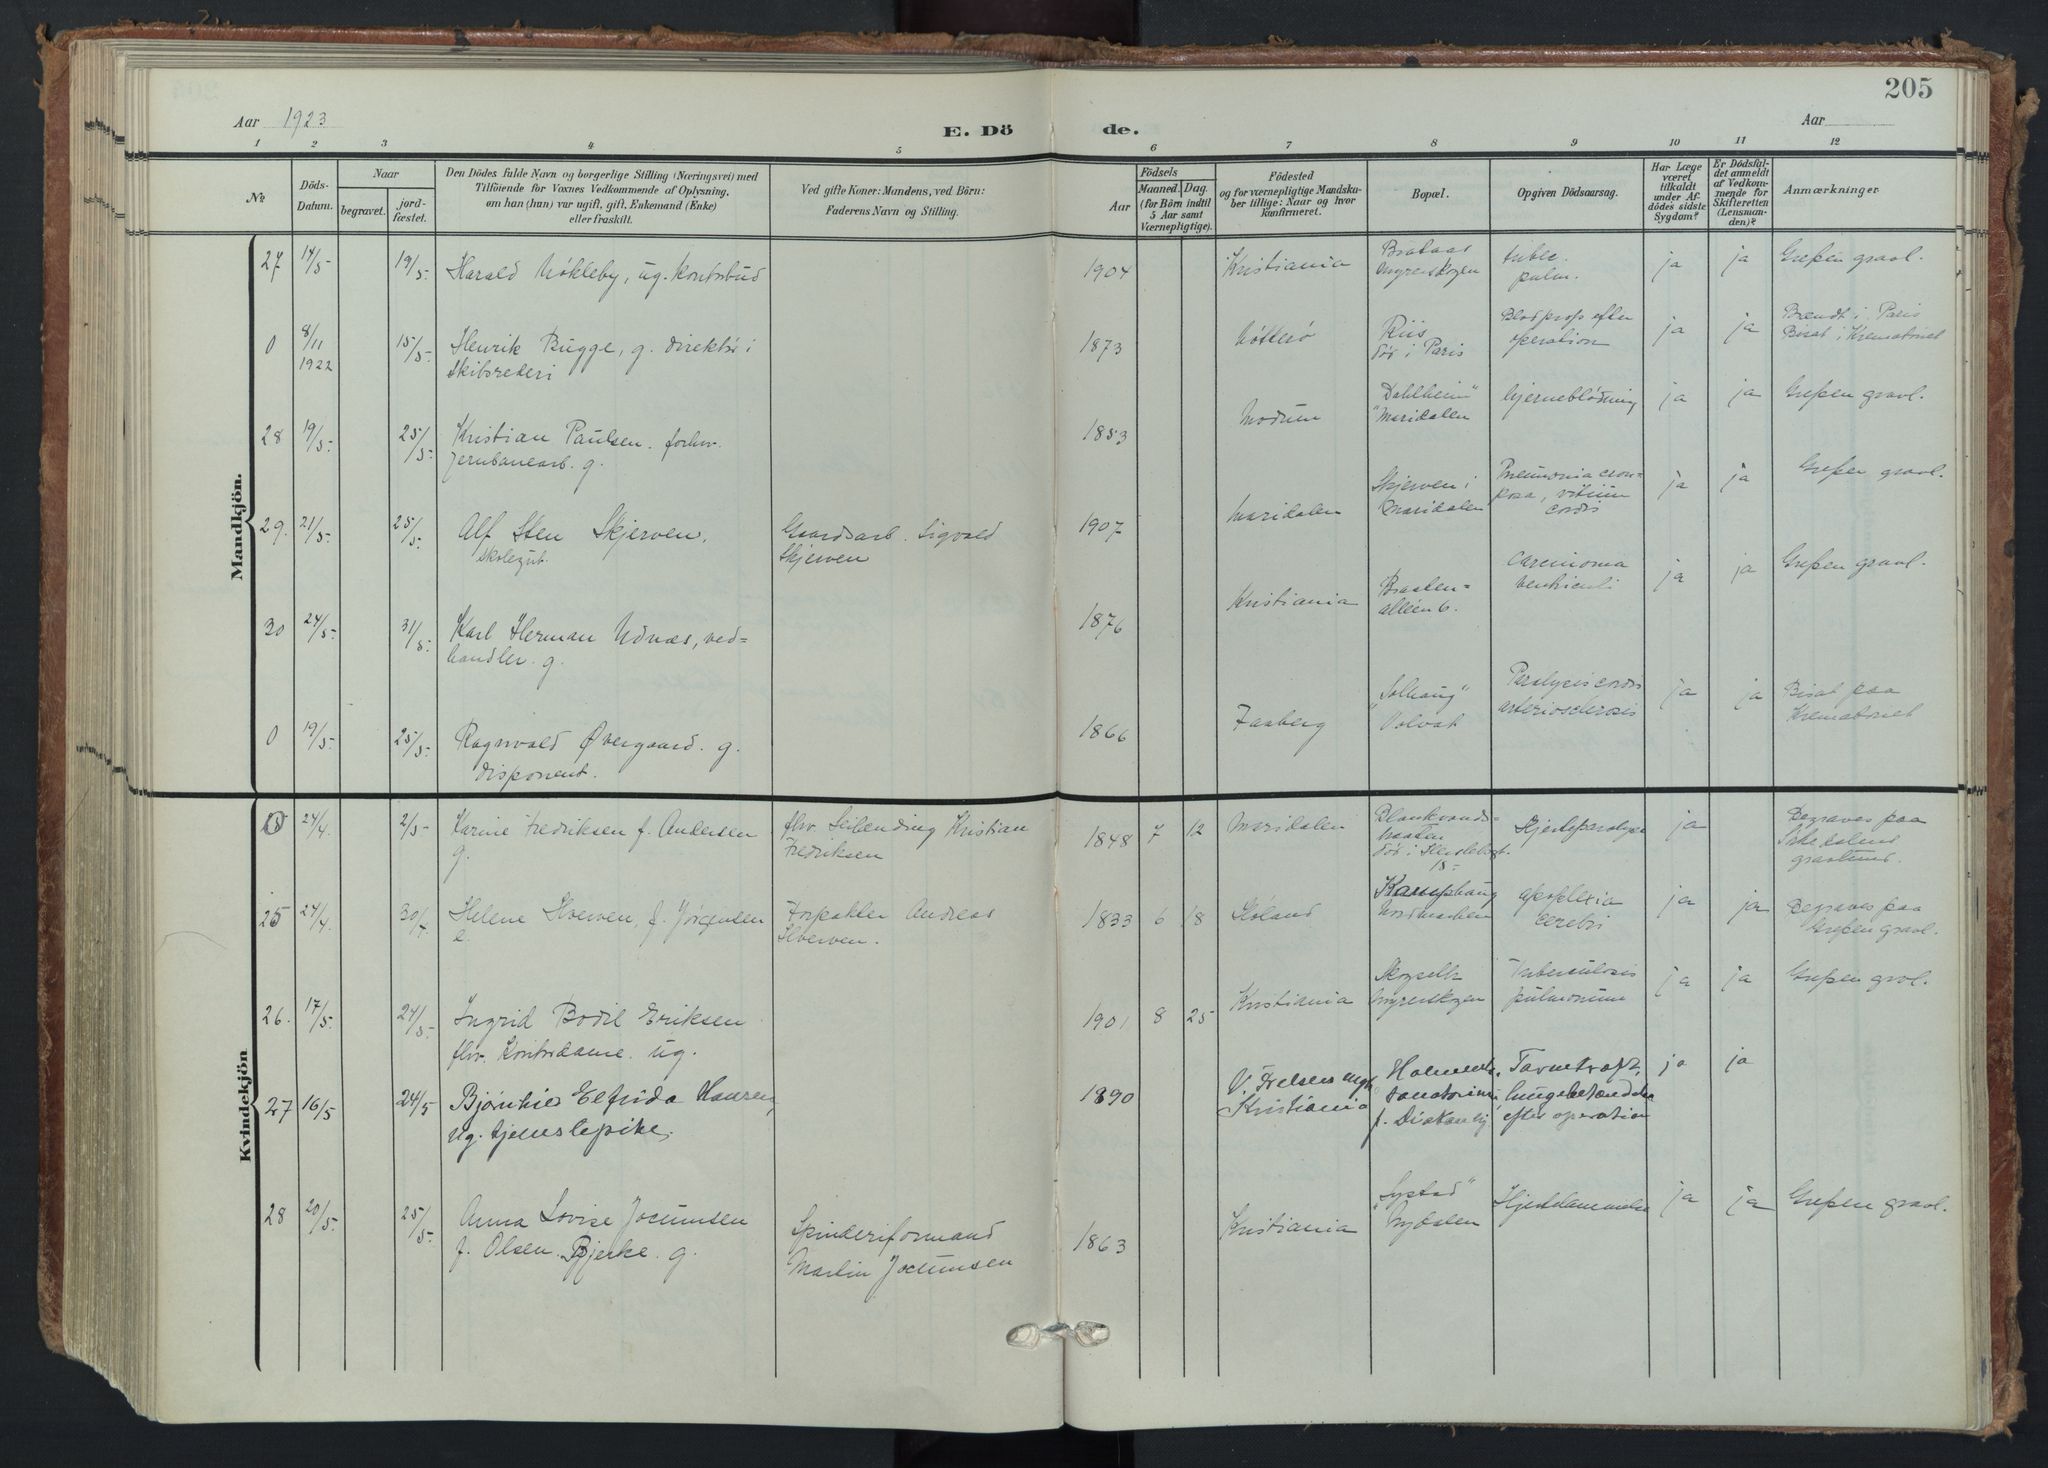 205
Aar 1923
E. Dö
de.
Aar
1 2 3 3 4 5 6 7 8 9 10 11 12
No.
Döds-Datum.
Naar
begravet.
jord-fæstet.
Den Dödes fulde Navn og borgerlige Stilling (Næringsvei) med
Tilföiende for Voxnes Vedkommende af Oplysning,
om han (hun) var ugift, gift, Enkemand (Enke)
eller fraskilt.
Ved gifte Koner: Mandens, ved Börn:
Faderens Navn og Stilling.
Aar
Födsels
Maaned. Dag.
(for Börn indtil
5 Aar samt
Værnepligtige).
Födested
og for værnepligtige Mandska-
ber tillige: Naar og hvor
konfirmeret.
Bopæl.
Opgiven Dödsaarsag.
Har Læge
været
tilkaldt
under Af-
dödes sidste
Sygdom?
Er Dödsfal-
det anmeldt
af Vedkom-
mende for
Skifteretten
(Lensman-
den)?
Anmærkninger
Mandkjön.
27 14/5 19/5 Harald Nökleby, ug. kontorbud 1904 Kristiania
Myrerskogen
tuberc.
pulm.
ja ja Grefsen gravl.
0 8/11 1922 15/5 Henrik Bugge, g. direktör i
Skibsrederi
1873 Nötterö
Riis
död i Paris
Blodprop efter
operation
ja ja Brændt i Paris
Bisat i Krematoriet
28 19/5 25/5 Kristian Paulsen. forhv.
Jernbanearb. g.
1853 Modum
"Dahlheim"
Maridalen
hjerneblödning
ja ja Grefsen gravl.
29. 21/5 25/5 Alf Sten Skjerven,
skolegut.
Gaardsarb. Sigvald
Skjerven
1907 Maridalen
Skjerven i
Maridalen
Pneumonia crou-
posa, vitium
cordis
ja ja Grefsen gravl.
30 24/5 31/5 Karl Herman Udnæs, ved-
handler. g.
1876 Kristiania
Braaten-
alléen 6.
Carcinoma
ventriculi
ja ja Grefsen gravl.
0 19/5 25/5 Ragnvald Övergaard. g.
disponent.
1866 Faaberg
"Solhaug"
Volvat
Paralysis cordis
arteriosclerosis
ja ja Bisat paa
Krematoriet
Kvindekjön
24/4 2/5 Karine Fredriksen f. Andersen
g.
fhv. Kristian
Fredriksen
1848 7 12 Maridalen
Blankvands-
braaten
Hjerteparalyse
ja
Begraves paa
gravlund.
25 24/4 30/4 Helene Hverven, f. Jörgensen
e.
Forpakter Andreas
Hverven.
1833 6 18 Höland
Kamphaug
Nordmarken
apoplexia
cerebri
ja ja Begraves paa
Grefsen gravl.
26. 17/5 24/5 Ingrid Bodil Eriksen
fhv. Kontordame. ug.
1901 8 25 Kristiania
Myrerskogen
Tuberculosis
pulmonum
ja ja Grefsen gravl.
27 16/5 24/5 Elfrida Hansen,
ug. tjenestepike.
1890 V. Frelsers mgh.
Kristiania
sanatorium
f. Diakonhj
lungebetændelse
efter operation
ja ja
28 20/5 25/5 Anna Lovise Jocumsen
f. Olsen Bjerke. g.
Spinderiformand
Martin Jocumsen
1863 Kristiania
"Lystad"
Nydalen
Hjertelammelse
ja ja Grefsen gravl.